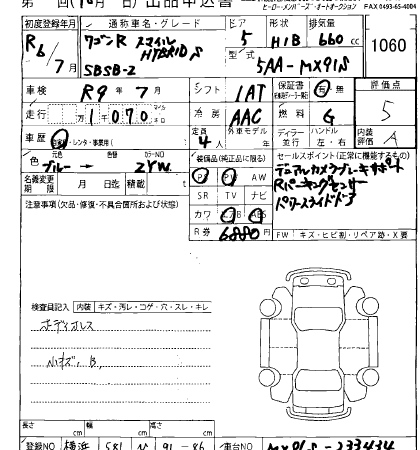 ヒーローメンバーズ・オートオークション FAX 0493-65-4004
初度登録年月 通称車名・グレード ドア 形状 排気量
R6/7月 ワゴンR スマイル HYBRID S 5 H/B 660 cc 1060
SBSB-2 型式 5AA-MX91S
車検 R9年7月 シフト IAT 保証書 有・無 評価点
走行 万 1千070 マイル キロ 冷房 AAC 燃料 G 5
車歴 自家用・レンタ・事業用( 定員 4人 外車モデル ディーラー 並行 ハンドル 左・右 内装評価 A
色 元色 ブルー→ 色替 カラーNO ZYW 装備品(純正品に限る) セールスポイント(正常に機能するもの)
名義変更期限 月 日迄 積載 t PS PW AW デュアルカメラブレーキサポート
注意事項(欠品・修復・不具合箇所および状態) SR TV ナビ Rパーキングセンサー
カワ エアB ABS パワースライドドア
R券 6880円 FW キズ・ヒビ割・リペア跡・X要
検査員記入 内装 キズ・汚レ・コゲ・穴・スレ・キレ
ボディオレス
小キズ、B,
長さ cm 幅 cm 高さ cm
登録NO 横浜 581 車台NO MX91S-233434